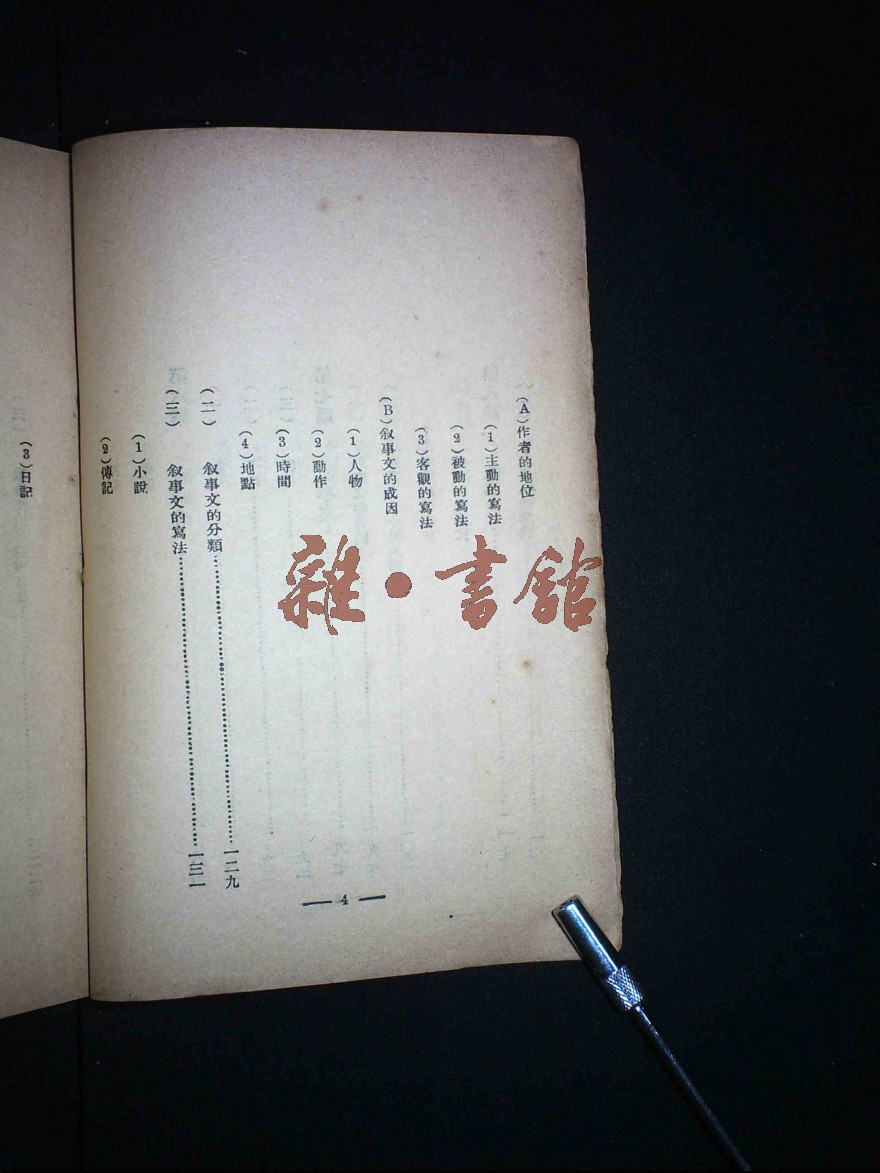 (A)作者的地位
(1)主動的寫法
(2)被動的寫法
(3)客觀的寫法
(B)敘事文的成因
(1)人物
(2)動作
(3)時間
(4)地點
(二) 敘事文的分類…………………………一二九
(三) 敘事文的寫法…………………………一三一
(1)小說
(2)傳記
(3)日記
— 4 —
雜•書館